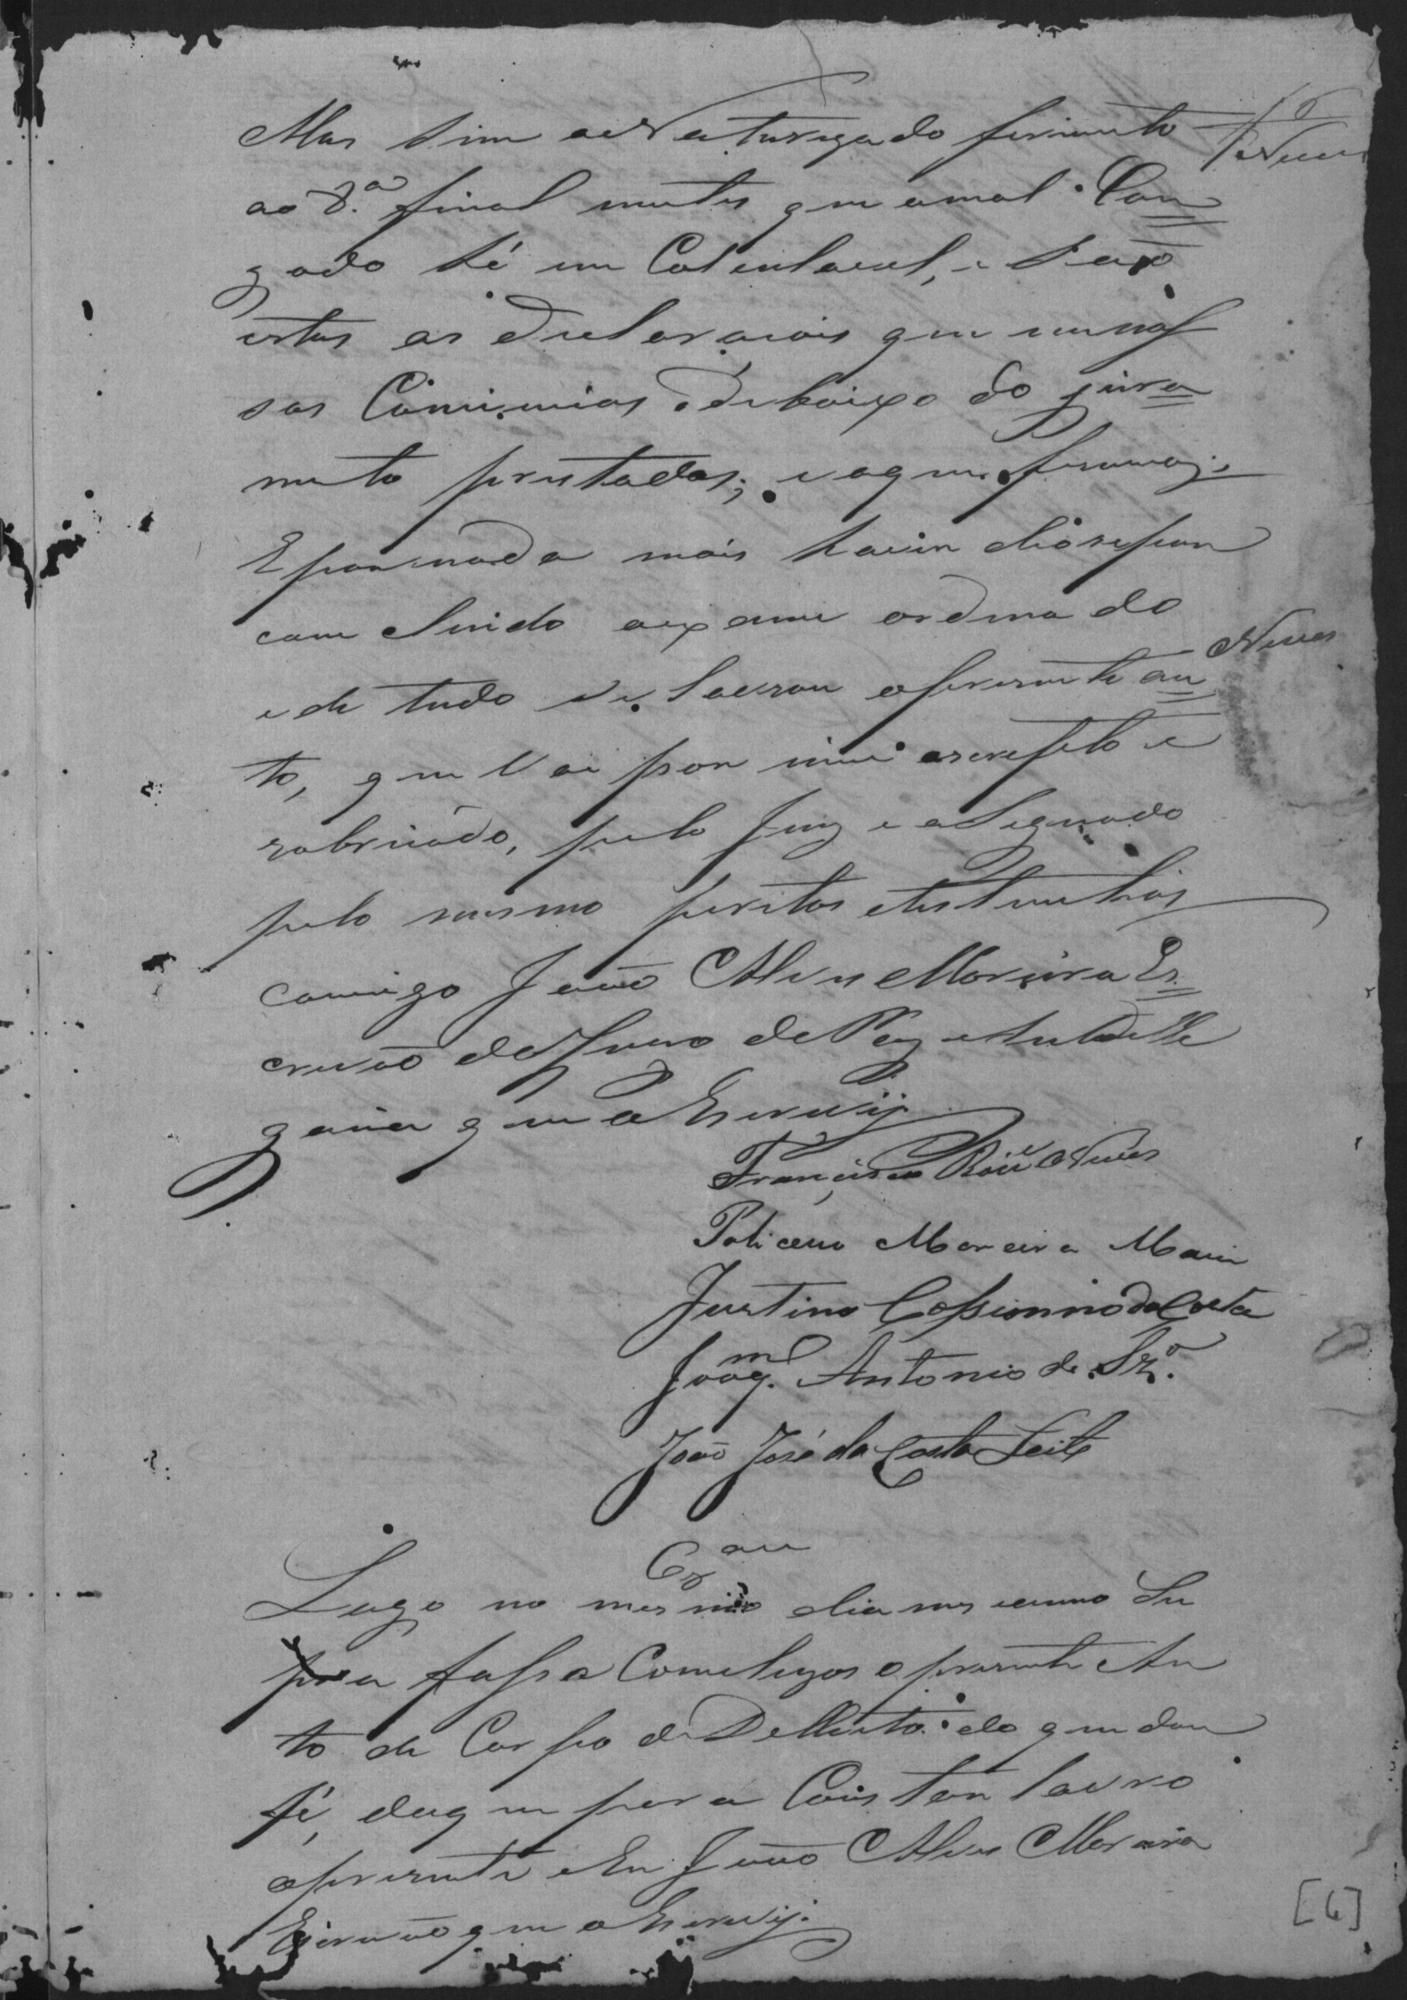 Mas sim a Natureza do ferimento
Neves
ao 8.ª final
gado he um Calculavel, e Saõ
estas as declaracois que em nos
sas Conciencias debaixo do jura
mento prestados; e a que
E por nada mais haver dise por
com Cluido o exame ordenado
Neves
e de tudo se lavrou o presente au
to, que Vai por mim escrepto e
rubricado, pelo Juiz e a Segnado
pelo mesmo peritos etestemunhas
comigo Joaõ Alves Moreira Es
crivaõ do Juizo de Paz e Subdelle
gacia que o Escrevÿ.
Francisco Roiz Neves
Policeno Moreira Maia
Justino Cassiminio da Costa
Joaqm. Antonio de Sz.ª
João José da Costa Leite
Czam
Logo no mesmo dia mes eanno Su
pra fasso Comcluzos o presente Au
to de Corpo de Dellicto: do que dou
fé, do que para Constar lavro
o presente e Eu Joaõ Alves Moreira
Escrivaõ que o Escrevÿ.
[6]